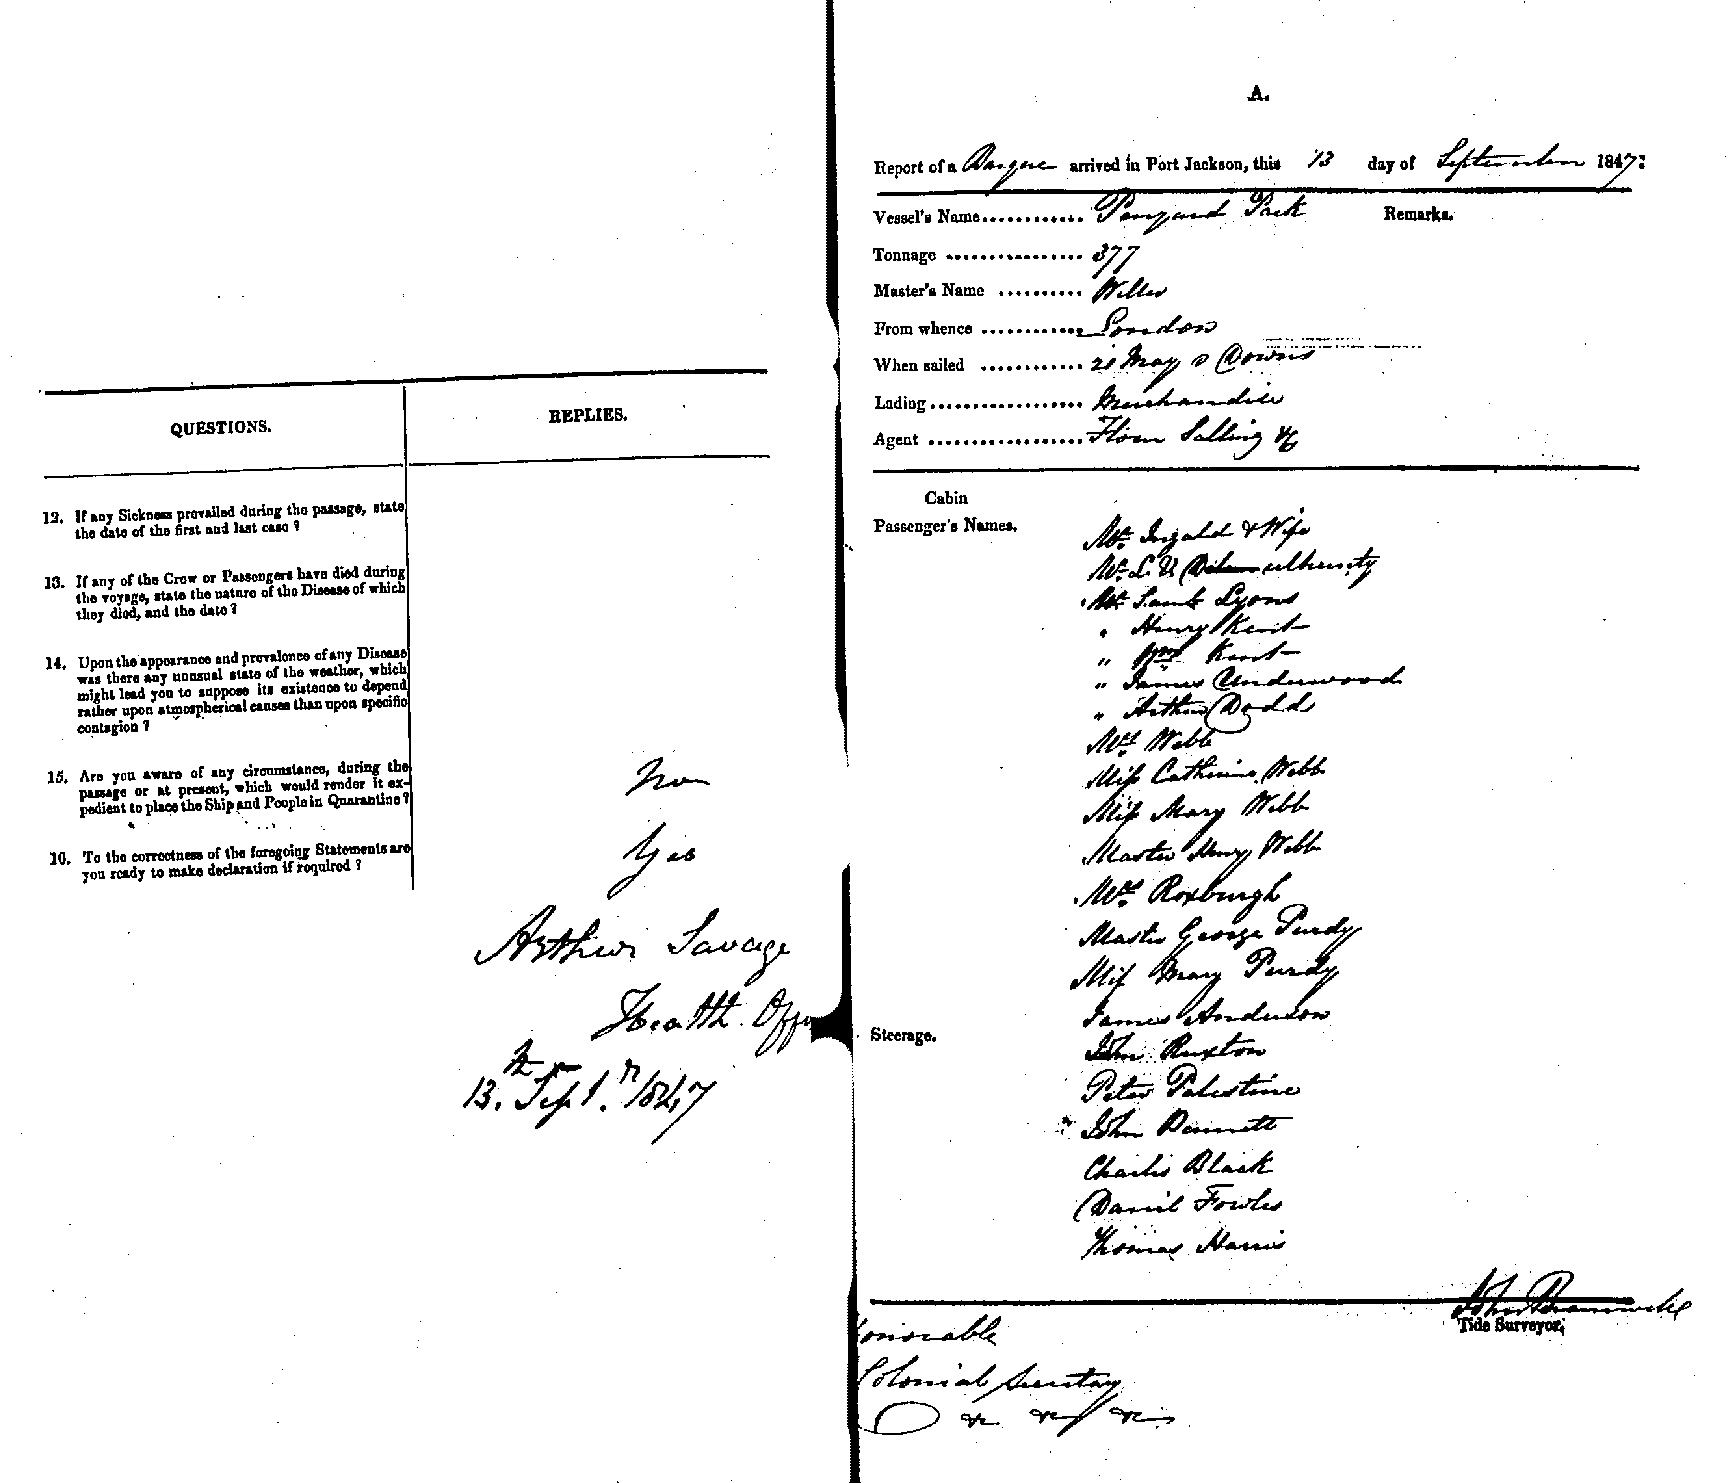 QUESTIONS.
REPLIES.
12. If any Sickness prevailed during the passage, state
the date of the first and last case ?
13. If any of the Crew or Passengers have died during
the voyage, state the nature of the Disease of which
they died, and the date ?
14. Upon the appearance and prevalence of any Disease
was there any unusual state of the weather, which
might lead you to suppose its existence to depend
rather upon atmospherical causes than upon specific
contagion ?
15. Are you aware of any circumstance, during the
passage or at present, which would render it ex-
pedient to place the Ship and People in Quarantine ?
16. To the correctness of the foregoing Statements are
you ready to make declaration if required ?
Yes
Arthur Savage
Health
13. Sept. 1847
A.
Report of a Barque arrived in Port Jackson, this 13 day of September 1847:
Vessel's Name............ Penyard Park Remarks.
Tonnage ................ 377
Master's Name ..........
From whence ............ London
When sailed ............ May Downs
Lading.................. Merchandise
Agent ..................
Cabin
Passenger's Names.
Mr. & Wife
Mr.
Mr. Lyons
" Henry Kent
" Wm Kent
" James Underwood
" Arthur Dodd
Mrs Webb
Miss Catherine Webb
Miss Mary Webb
Master Henry Webb
Mrs Roxburgh
Master George Purdy
Miss Mary Purdy
Steerage.
James Anderson
John Ruxton
Peter Palestine
John
Charles Black
Daniel Fowles
Thomas Harris
John
Tide Surveyor.
onorable
Colonial Secretary
&c &c &c